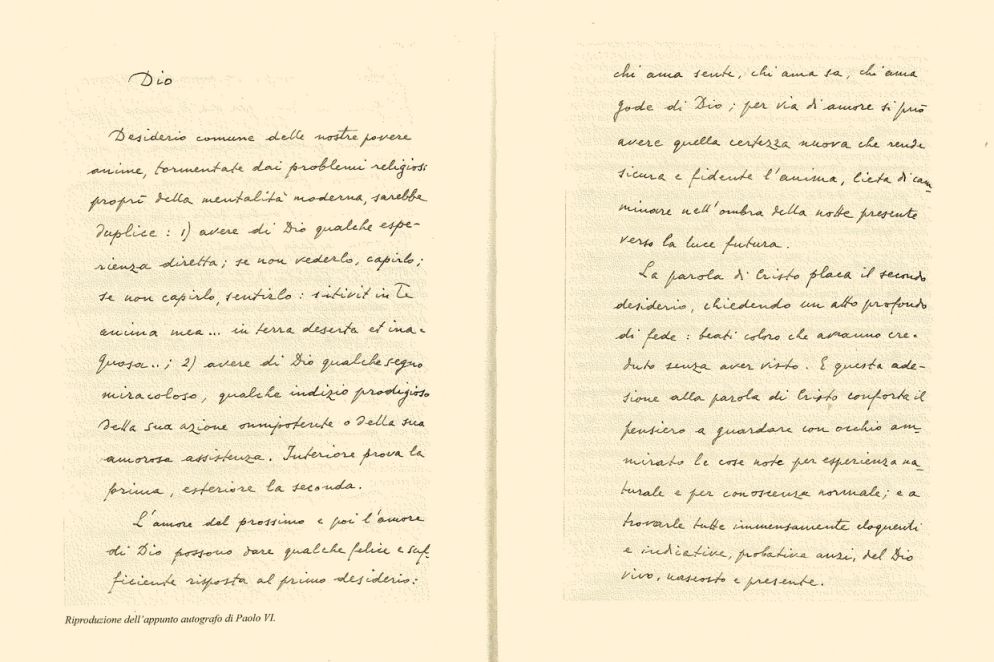 Dio
Desiderio comune delle nostre povere
anime, tormentate dai problemi religiosi
proprî della mentalità moderna, sarebbe
duplice : 1) avere di Dio qualche espe-
rienza diretta ; se non vederlo, capirlo ;
se non capirlo, sentirlo : sitivit in Te
anima mea ... in terra deserta et ina-
quosa ... ; 2) avere di Dio qualche segno
miracoloso, qualche indizio prodigioso
della sua azione onnipotente o della sua
amorosa assistenza. Interiore prova la
prima, esteriore la seconda.
L'amore del prossimo e poi l'amore
di Dio possono dare qualche felice e suf-
ficiente risposta al primo desiderio:
chi ama sente, chi ama sa, chi ama
gode di Dio ; per via di amore si può
avere quella certezza nuova che rende
sicura e fidente l'anima, lieta di cam-
minare nell'ombra della notte presente
verso la luce futura.
La parola di Cristo placa il secondo
desiderio, chiedendo un atto profondo
di fede : beati coloro che avranno cre-
duto senza aver visto. E questa ade-
sione alla parola di Cristo conforta il
pensiero a guardare con occhio am-
mirato le cose note per esperienza na-
turale e per conoscenza normale ; e a
trovarle tutte immensamente eloquenti
e indicative, probative anzi, del Dio
vivo, nascosto e presente.
Riproduzione dell'appunto autografo di Paolo VI.